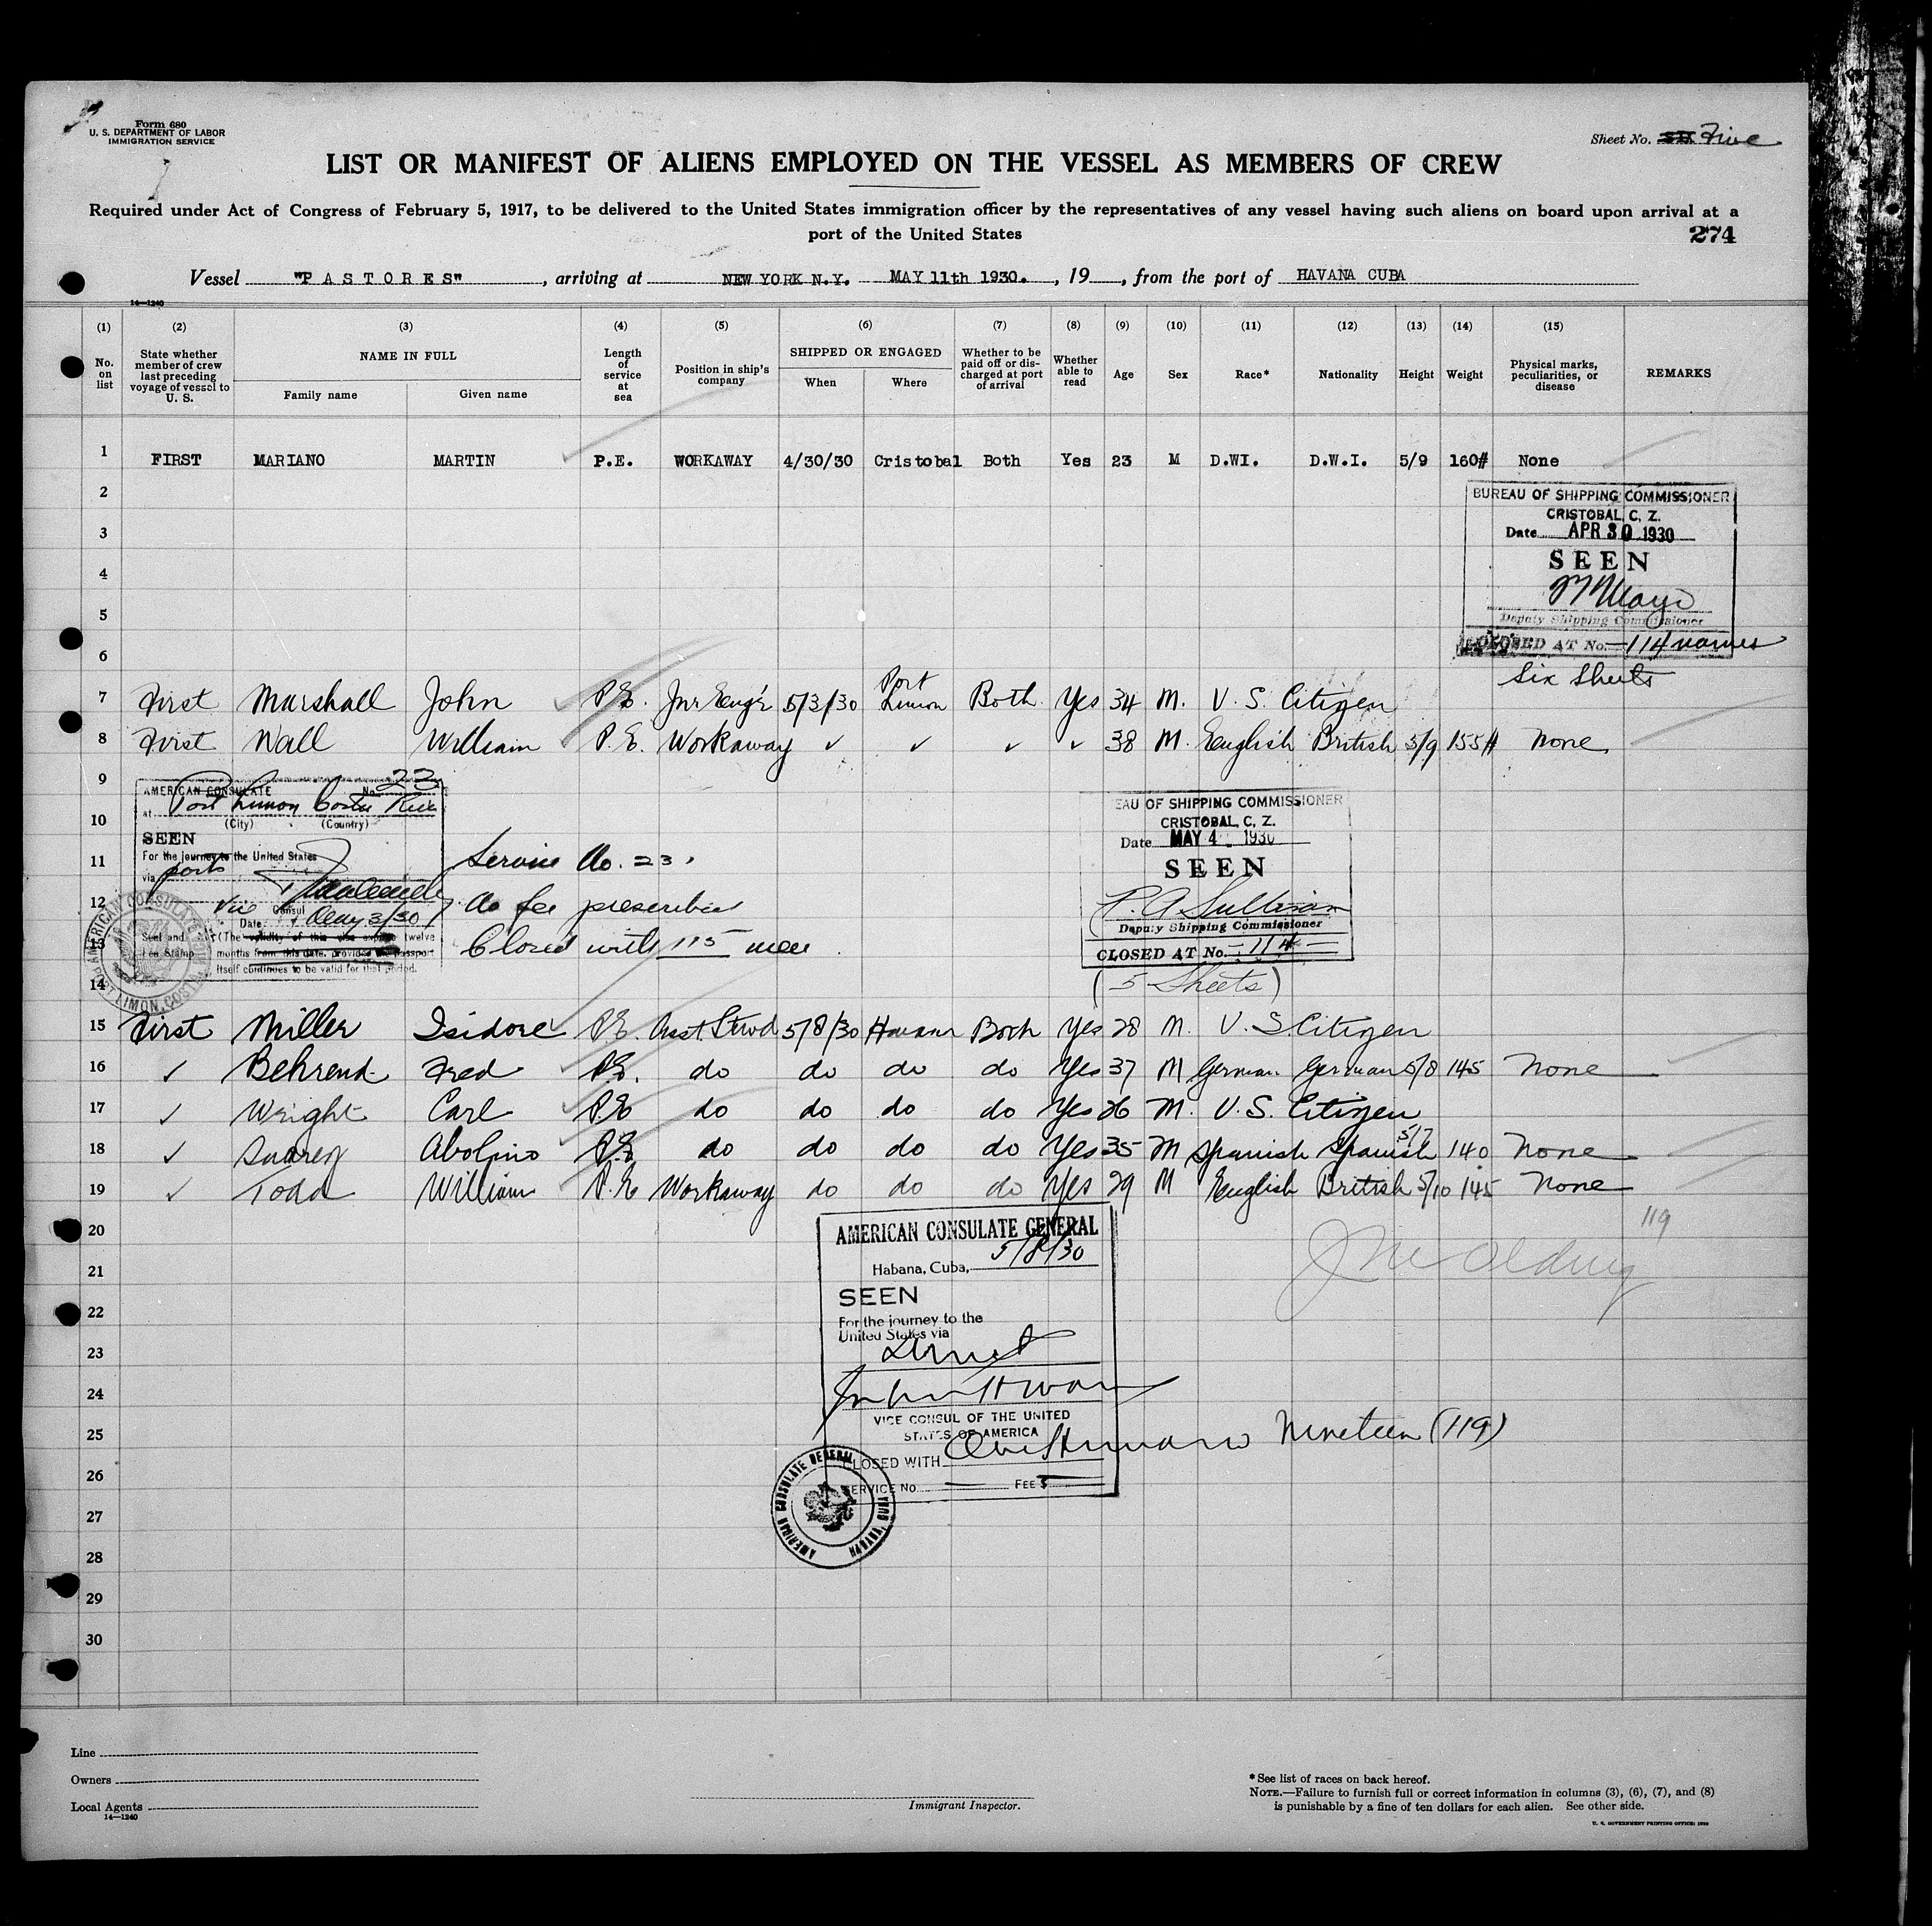 Form 680
U. S. DEPARTMENT OF LABOR
IMMIGRATION SERVICE
Sheet No. Five
LIST OR MANIFEST OF ALIENS EMPLOYED ON THE VESSEL AS MEMBERS OF CREW
Required under Act of Congress of February 5, 1917, to be delivered to the United States immigration officer by the representatives of any vessel having such aliens on board upon arrival at a
port of the United States
274
Vessel "PASTORES", arriving at NEW YORK N.Y. MAY 11th 1930., 19, from the port of HAVANA CUBA
14—1240
(1) (2) (3) (4) (5) (6) (7) (8) (9) (10) (11) (12) (13) (14) (15)
No. on list
State whether member of crew last preceding voyage of vessel to U. S.
NAME IN FULL
Family name
Given name
Length of service at sea
Position in ship's company
SHIPPED OR ENGAGED
When
Where
Whether to be paid off or discharged at port of arrival
Whether able to read
Age
Sex
Race*
Nationality
Height
Weight
Physical marks, peculiarities, or disease
REMARKS
1 FIRST MARIANO MARTIN P.E. WORKAWAY 4/30/30 Cristobal Both Yes 23 M D.WI. D.W.I. 5/9 160# None
2
BUREAU OF SHIPPING COMMISSIONER
CRISTOBAL, C. Z.
3
Date APR 30 1930
4
SEEN
5
Deputy Shipping Commissioner
CLOSED AT No. 114 names
6
Six Sheets
7 First Marshall John P.E. Jnr Eng'r 5/3/30 Port Limon Both Yes 34 M. U. S. Citizen
8 First Wall William P.E. Workaway ✓ ✓ ✓ ✓ 38 M. English British 5/9 155# None
9
AMERICAN CONSULATE No. 23
at Port Limon Costa Rica
(City) (Country)
10
SEEN
For the journey to the United States
via ports
11
Service No. 23
12
Consul
Date May 3/30
No fee prescribed
13
Seal and Fee Stamp
(The validity of this visa expires twelve
months from this date, provided the passport
itself continues to be valid for that period.
Closed with 115 men
BUREAU OF SHIPPING COMMISSIONER
CRISTOBAL, C. Z.
Date MAY 4 1930
SEEN
P.A. Sullivan
Deputy Shipping Commissioner
CLOSED AT No. -114-
(5 Sheets)
14
15 First Miller Isidore P.E. Asst. Stwd 5/8/30 Havana Both Yes 28 M. U. S Citizen
16 ✓ Behrend Fred P.E. do do do do Yes 37 M German German 5/8 145 None
17 ✓ Wright Carl P.E do do do do Yes 26 M. U.S. Citizen
18 ✓ Suarez Abolino P.E do do do do Yes 35 M Spanish Spanish 5/7 140 None
19 ✓ Todd William P.E Workaway do do do Yes 29 M English British 5/10 145 None
119
20
AMERICAN CONSULATE GENERAL
5/8/30
21
Habana, Cuba,
SEEN
22
For the journey to the
United States via
23
Direct
24
VICE CONSUL OF THE UNITED
STATES OF AMERICA
25
CLOSED WITH One Hundred Nineteen (119)
26
SERVICE No. FEE
AMERICAN CONSULATE GENERAL
HABANA, CUBA
27
28
29
30
Line
Owners
Local Agents
14—1240
Immigrant Inspector.
*See list of races on back hereof.
NOTE.—Failure to furnish full or correct information in columns (3), (6), (7), and (8)
is punishable by a fine of ten dollars for each alien. See other side.
U. S. GOVERNMENT PRINTING OFFICE: 1929